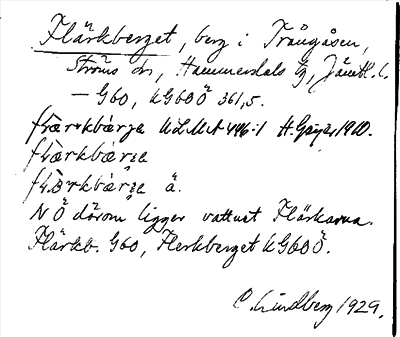 Flärkberget, berg i Trångåsen,
Ströms sn, Hammerdals tg, Jämtl. l.
— G60, KG60Ö 361,5.
flærkbærjə ULMA 446:1 H. Geijer, 1920.
flærkbærjə
flærkbærjə ä.
N Ö därom ligger vattnet Flärkarna.
Flärkb. G60, Flerkberget KG60Ö.
C. Lindberg 1929.